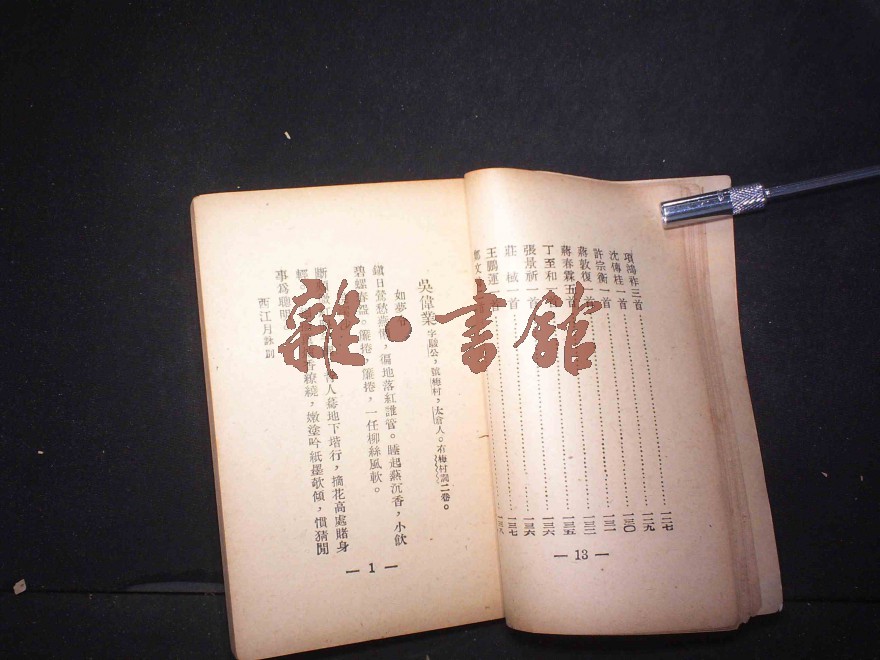 項鴻祚三首………一二七
沈傳桂一首………一二九
許宗衡一首………一三〇
蔣敦復一首………一三一
蔣春霖五首………一三五
丁至和一首………一三六
張景祈一首………一三六
莊棫一首………一三七
王鵬運一首………一三八
鄭文
— 13 —
吳偉業字駿公，號梅村，太倉人。有梅村詞二卷。
如夢令
鎮日鶯愁燕懶，徧地落紅誰管。睡起爇沉香，小飲
碧螺春盌。簾捲，簾捲，一任柳絲風軟。
西江月詠別
人驀地下堦行，摘花高處賭身
輕
香繚繞，嫩塗吟紙墨欹傾，慣猜閒
事爲聰明
— 1 —
雜·書舘